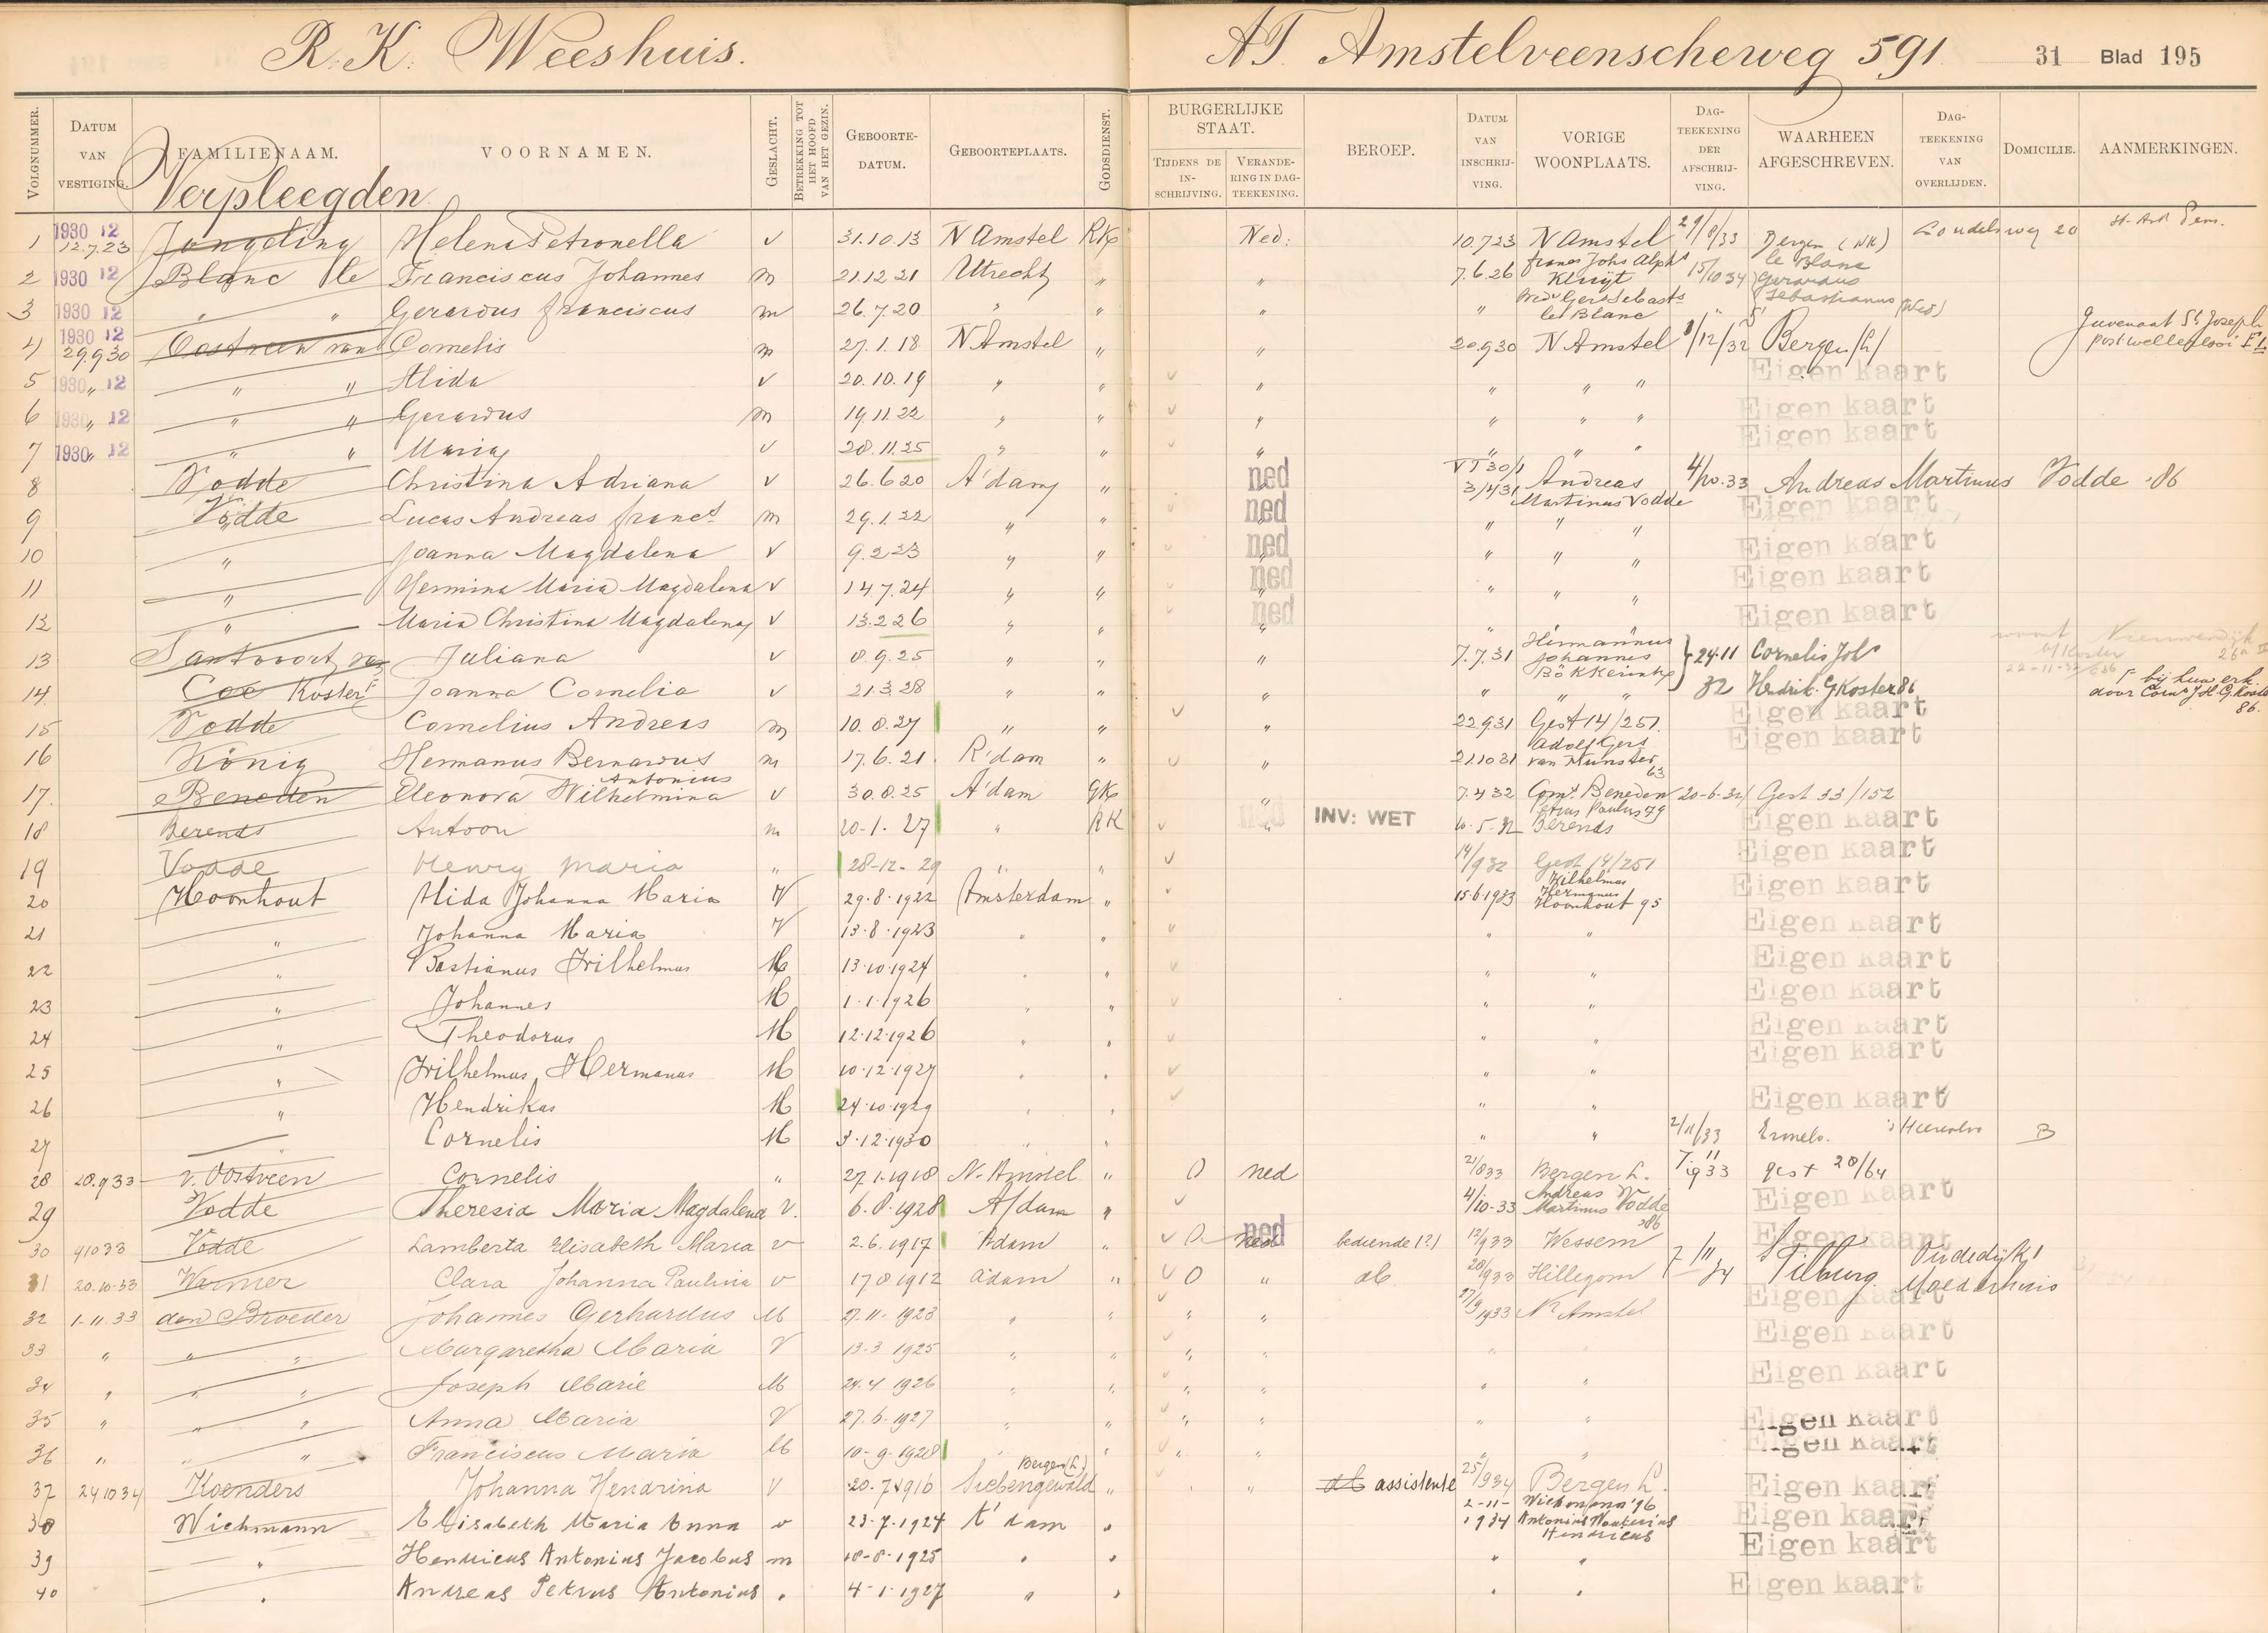 R.K. Weeshuis. AT. Amstelveenscheweg 591 31 Blad 195
VOLGNUMMER. DATUM VAN VESTIGING. FAMILIENAAM. VOORNAMEN. GESLACHT. BETREKKING TOT HET HOOFD VAN HET GEZIN. GEBOORTE-DATUM. GEBOORTEPLAATS. GODSDIENST. BURGERLIJKE STAAT. TIJDENS DE IN-SCHRIJVING. VERANDE-RING IN DAG-TEEKENING. BEROEP. DATUM VAN INSCHRIJ-VING. VORIGE WOONPLAATS. DAG-TEEKENING DER AFSCHRIJ-VING. WAARHEEN AFGESCHREVEN. DAG-TEEKENING VAN OVERLIJDEN. DOMICILIE. AANMERKINGEN.
Verpleegden
1 1930 12 12.7.23 Jongeling Helena Petronella v 31.10.13 N Amstel RK Ned: 10.7.23 N Amstel 29/8/33 Bergen (NH)
2 1930 12 Blanc le Franciscus Johannes m 21.12.21 Utrecht " " 7.6.26 frans Johs Alphs Kluijt 15/10 34 le Blanc Gerardus Sebastianus
3 1930 12 " " Gerardus franciscus m 26.7.20 " " " Gers Sebasts le Blanc
4 1930 12 29.9.30 Oostveen van Cornelis m 27.1.18 N Amstel " " 20.9.30 N Amstel 8/12/32 Bergen (L) Juvenaat St Joseph
5 1930 12 " " Alida v 20.10.19 " " " " " " Eigen kaart
6 1930 12 " " Gerardus m 19.11.22 " " " " " " Eigen kaart
7 1930 12 " " Maria v 28.11.25 " " " " " " Eigen kaart
8 Vodde Christina Adriana v 26.6.20 A'dam " ned VT 30/1 3/4 31 Andreas Martinus Vodde 4/10.33 Andreas Martinus Vodde '86
9 Vodde Lucas Andreas francs m 29.1.22 " " ned " " " Eigen kaart
10 " Joanna Magdalena v 9.2.23 " " ned " " " Eigen kaart
11 " Hermina Maria Magdalena v 14.7.24 " " ned " " " Eigen kaart
12 " Maria Christina Magdalena v 13.2.26 " " ned " Eigen kaart
13 Santvoort van Juliana v 8.9.25 " " " 7.7.31 Hermannus Johannes Bökkerink 24.11 32 Cornelis Johs
14 Coe Koster Joanna Cornelia v 21.3.28 " " " " " Hendrik G Koster 86 bij huw erk. door Corns J H G Koster 86.
15 Vodde Cornelius Andreas m 10.8.27 " " " 22.9.31 Gest 14/251. Eigen kaart
16 König Hermanus Bernardus Antonius m 17.6.21 R'dam " " 21.10 31 Adolf Gers van Munster 63 Eigen kaart
17. Beneden Eleonora Wilhelmina v 30.8.25 A'dam GK " 7.4 32 Corns Beneden 20-6-32 Gest 33/152
18 Berends Antoon m 20-1.27 " RK ned INV: WET 10-5-32 Petrus Paulus 79 Berends Eigen kaart
19 Vodde Henry Maria " 28-12-29 " " 14/9 32 Gest 14/251 Eigen kaart
20 Hoonhout Alida Johanna Maria V 29.8.1922 Amsterdam " 15.6.1933 Wilhelmus Hermanus Hoonhout 95 Eigen kaart
21 " Johanna Maria V 13.8.1923 " " " " Eigen kaart
22 " Bastianus Wilhelmus M 13.10.1924 " " " " Eigen kaart
23 " Johannes M 1.1.1926 " " " " Eigen kaart
24 " Theodorus M 12.12.1926 " " " " Eigen kaart
25 " Wilhelmus Hermanus M 10.12.1927 " " " " Eigen kaart
26 " Hendrikus M 24.10.1929 " " " " Eigen kaart
27 " Cornelis M 3.12.1930 " " " " 2/11/33 Ermelo. B
28 20.9.33 v. Oostveen Cornelis " 27.1.1918 N. Amstel " O ned 21/8 33 Bergen L. 7.11 1933 gest 28/64
29 Vodde Theresia Maria Magdalena v. 6.8.1928 A/dam " 4/10-33 Andreas Martinus Vodde '86 Eigen kaart
30 41033 Vodde Lamberta Elisabeth Maria v 2.6.1917 Adam " O ned bediende (?) 12/9 33 Wessem Eigen kaart
31 20.10.33 Wormer Clara Johanna Paulina v 17 8 1912 adam " O " 20/9 33 Hillegom 7/11 34 Tilburg. Oudedijk 1 Moederhuis
32 1.11.33 den Broeder Johannes Gerhardus M 27.11.1923 " " " " 27/9 1933 Nr Amstel Eigen kaart
33 " " " Margaretha Maria V 13.3 1925 " " " " " " Eigen kaart
34 " " " Joseph Marie M 24.4 1926 " " " " " " Eigen kaart
35 " " " Anna Maria V 27.6.1927 " " " " " " Eigen kaart
36 " " " Franciscus Maria M 10-9-1928 " " " " " " Eigen kaart
37 241034 Koenders Johanna Hendrina V 20.7.1916 Bergen (L) Siebengewald " " assistente 25/9 34 Bergen L. Eigen kaart
38 Wichmann Elisabeth Maria Anna v 23-7-1924 A'dam " 2-11-1934 Wichmann '96 Antonius Wouterius Henricus Eigen kaart
39 " Henricus Antonius Jacobus m 18-8-1925 " " " " Eigen kaart
40 " Andreas Petrus Antonius " 4-1-1927 " " " " Eigen kaart